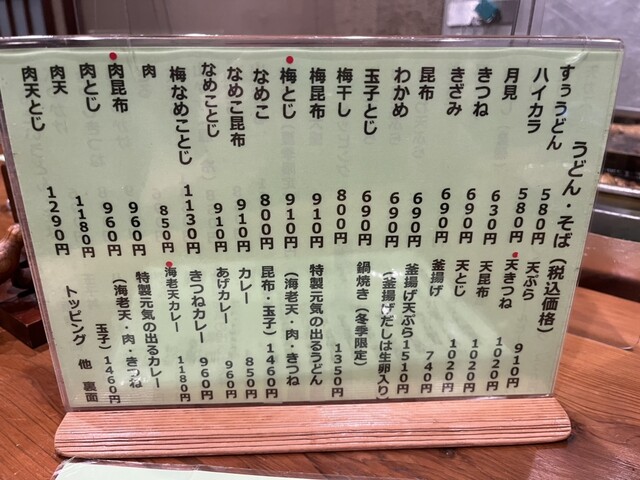 うどん・そば(税込価格)
すぅうどん 580円
ハイカラ 580円
月見 630円
きつね 690円
きざみ 690円
昆布 690円
わかめ 690円
玉子とじ 690円
梅干し 800円
梅昆布 910円
梅とじ 910円
なめこ 800円
なめこ昆布 910円
なめことじ 910円
梅なめことじ 1130円
肉 850円
肉昆布 960円
肉とじ 960円
肉天 1180円
肉天とじ 1290円
天ぷら 910円
天きつね 1020円
天昆布 1020円
天とじ 1020円
釜揚げ 740円
釜揚げ天ぷら 1510円
(釜揚げだしは生卵入り)
鍋焼き(冬季限定) 1350円
特製元気の出るうどん
(海老天・肉・きつね
昆布・玉子) 1460円
カレー 850円
あげカレー 960円
きつねカレー 960円
海老天カレー 1180円
特製元気の出るカレー
(海老天・肉・きつね
玉子) 1460円
トッピング 他 裏面